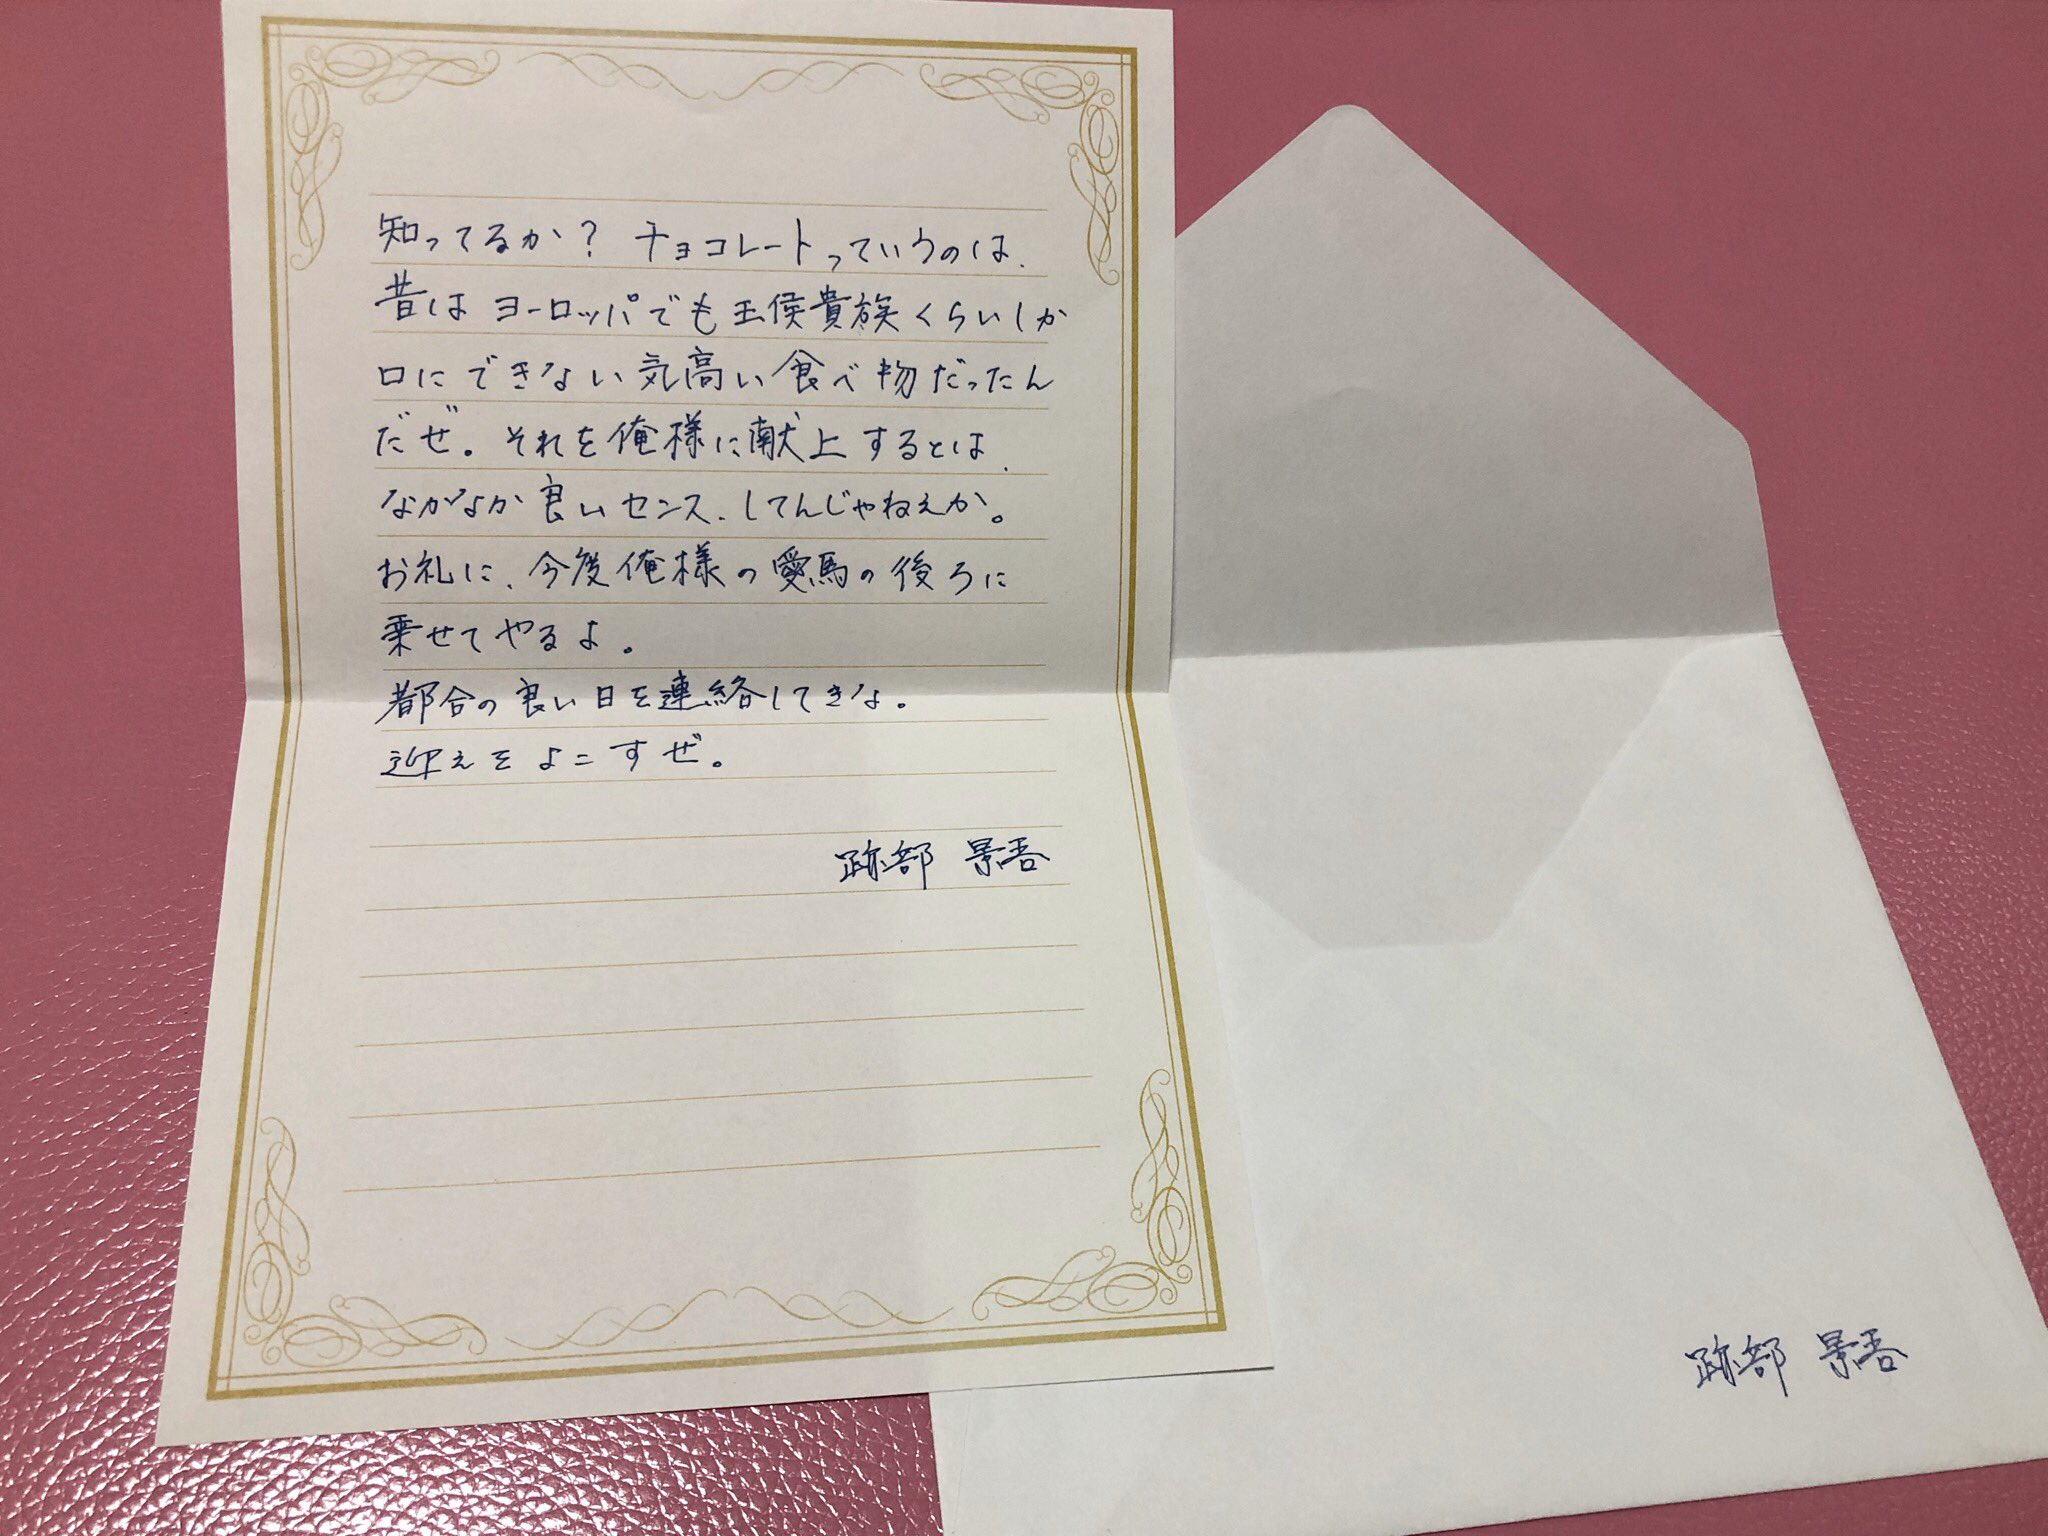 知ってるか？ チョコレートっていうのは、
昔はヨーロッパでも王侯貴族くらいしか
口にできない気高い食べ物だったん
だぜ。それを俺様に献上するとは、
なかなか良いセンス、してんじゃねえか。
お礼に、今度俺様の愛馬の後ろに
乗せてやるよ。
都合の良い日を連絡してきな。
迎えをよこすぜ。
跡部 景吾
跡部 景吾